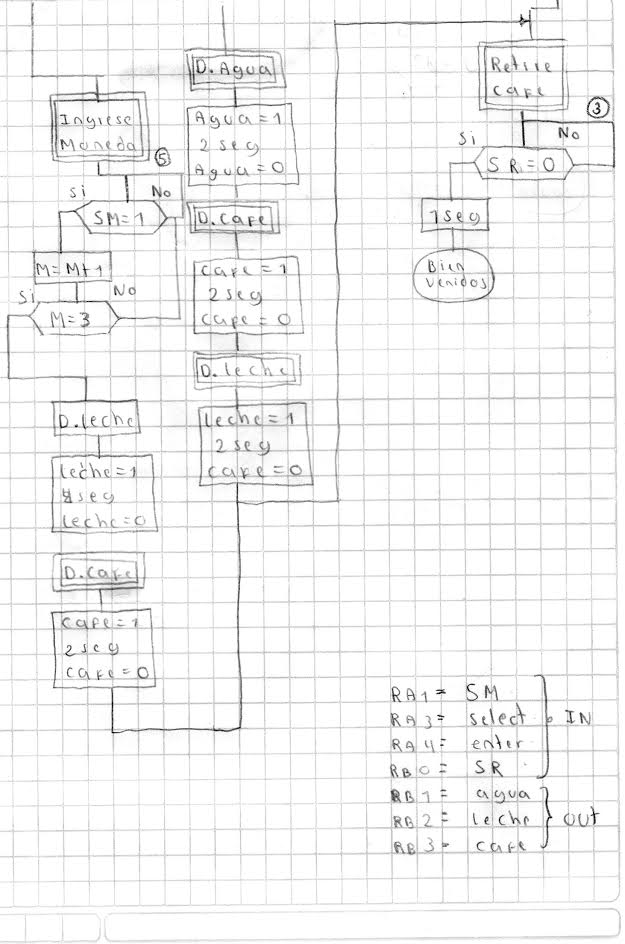 Ingrese
Moneda
5
Si
No
SM=1
M=M+1
Si
No
M=3
D.leche
leche=1
seg
leche=0
D.cafe
cafe=1
2 seg
cafe=0
D.Agua
Agua=1
2 seg
Agua=0
D.cafe
cafe=1
2 seg
cafe=0
D.leche
leche=1
2 seg
cafe=0
Retire
cafe
3
Si
No
SR=0
1 seg
Bien
venidos
RA1= SM
RA3= select
IN
RA4= enter
RB0= SR
RB1= agua
RB2= leche
OUT
RB3= cafe